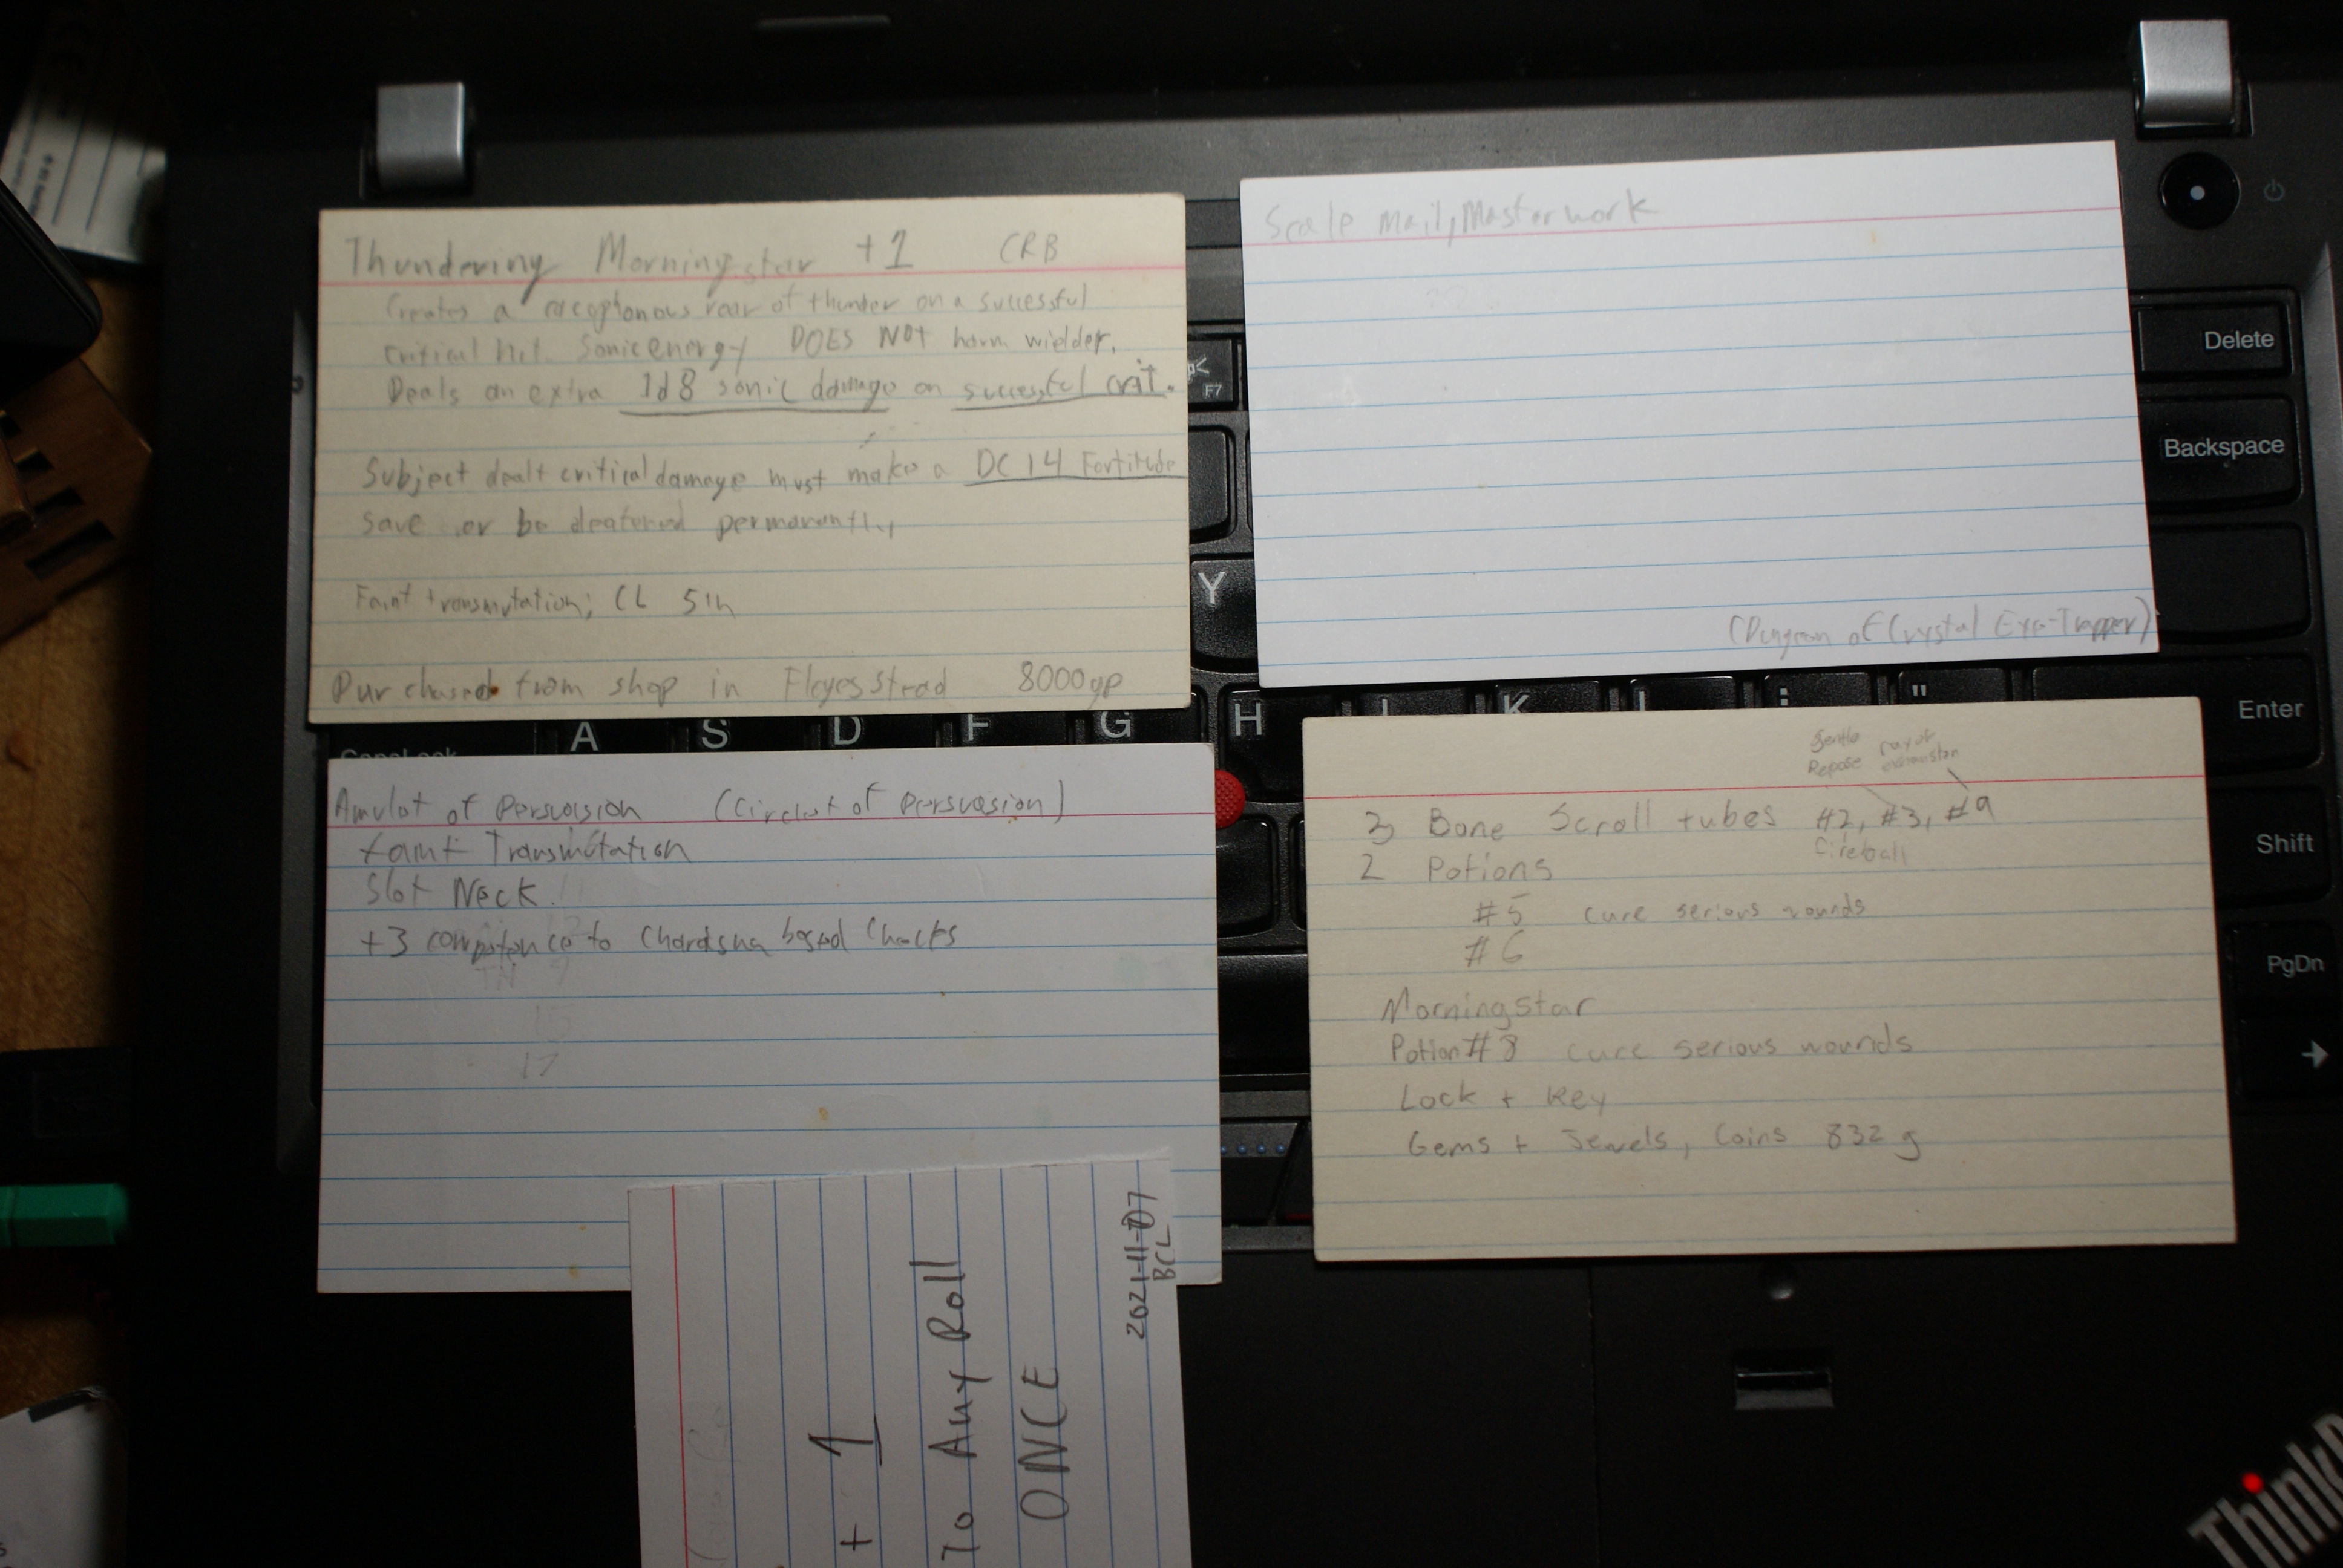 Thundering Morningstar +1 CRB
Creates a cacophonous roar of thunder on a successful
critical hit. Sonic energy DOES NOT harm wielder.
Deals an extra 1d8 sonic damage on successful crit.
Subject dealt critical damage must make a DC 14 Fortitude
save or be deafened permanently
Faint transmutation; CL 5th
Purchased from shop in 8000gp
Scale Mail, Masterwork
(Dungeon of Crystal Trapper)
Amulet of Persuasion (Circlet of Persuasion)
faint Transmutation
Slot Neck
+3 competence to Charisma based Checks
17
+1
To Any Roll
ONCE
2021-11-07
BCL
Gentle ray of
Repose exhaustion
3 Bone Scroll tubes #2, #3, #9
fireball
2 Potions
#5 cure serious wounds
#6
Morningstar
Potion #8 cure serious wounds
Lock + Key
Gems + Jewels, Coins 832 g
Delete
Backspace
Enter
Shift
PgDn
F7
Y
A S D F G H J K L : "
ThinkP